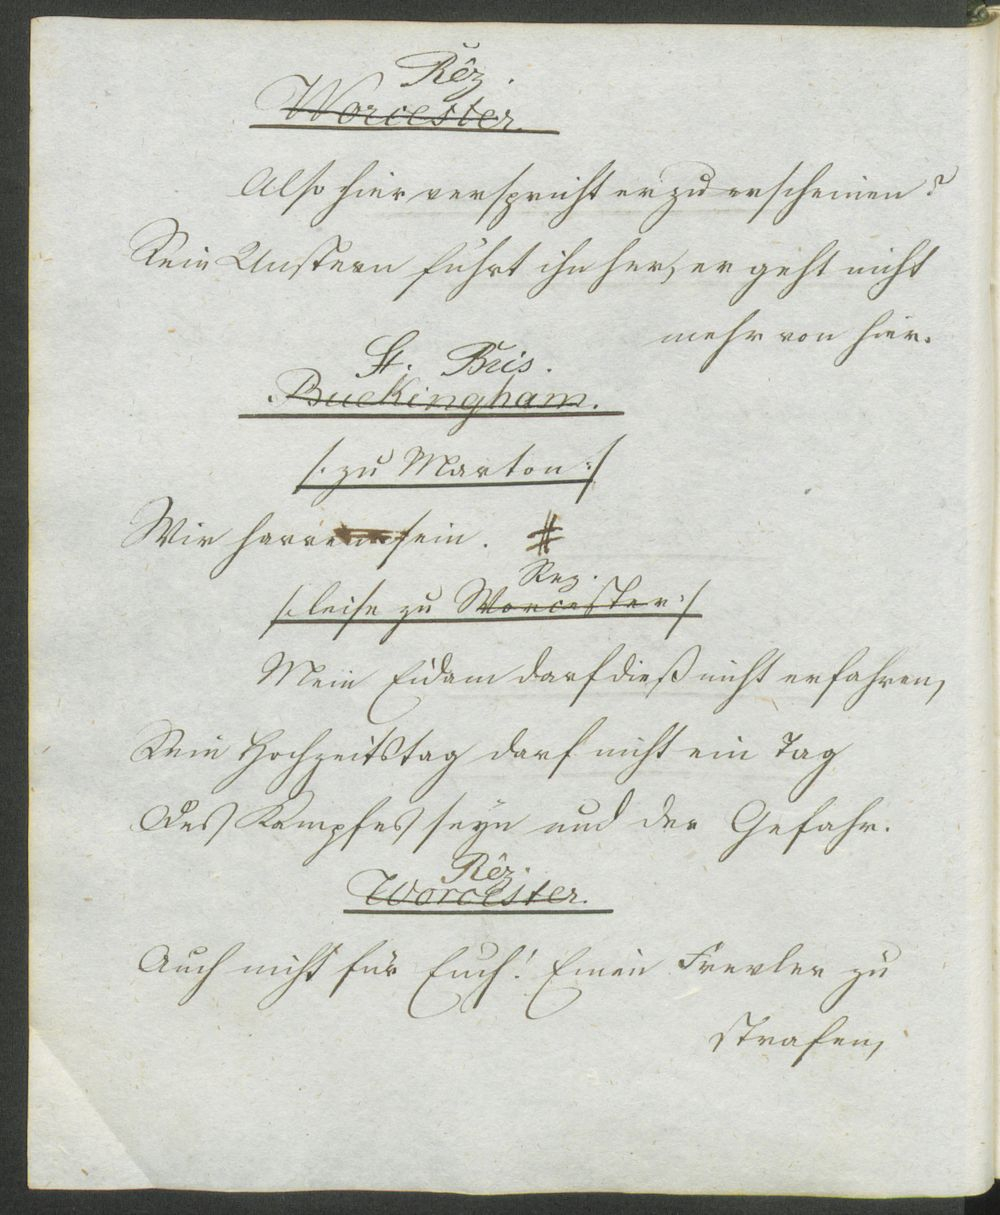 Rêz.
Worcester.
Also hier verspricht er zu erscheinen?
Sein Unstern führt ihn her, er geht nicht
mehr von hier.
St. Bris.
Buckingham.
/: zu Marton :/
Wir harren sein. #
Rez.
/: leise zu Worcester :/
Mein Eidam darf dieß nicht erfahren,
Sein Hochzeitstag darf nicht ein Tag
Des Kampfes seyn und der Gefahr.
Rêz.
Worcester.
Auch nicht für Euch! Einen Frevler zu
strafen,